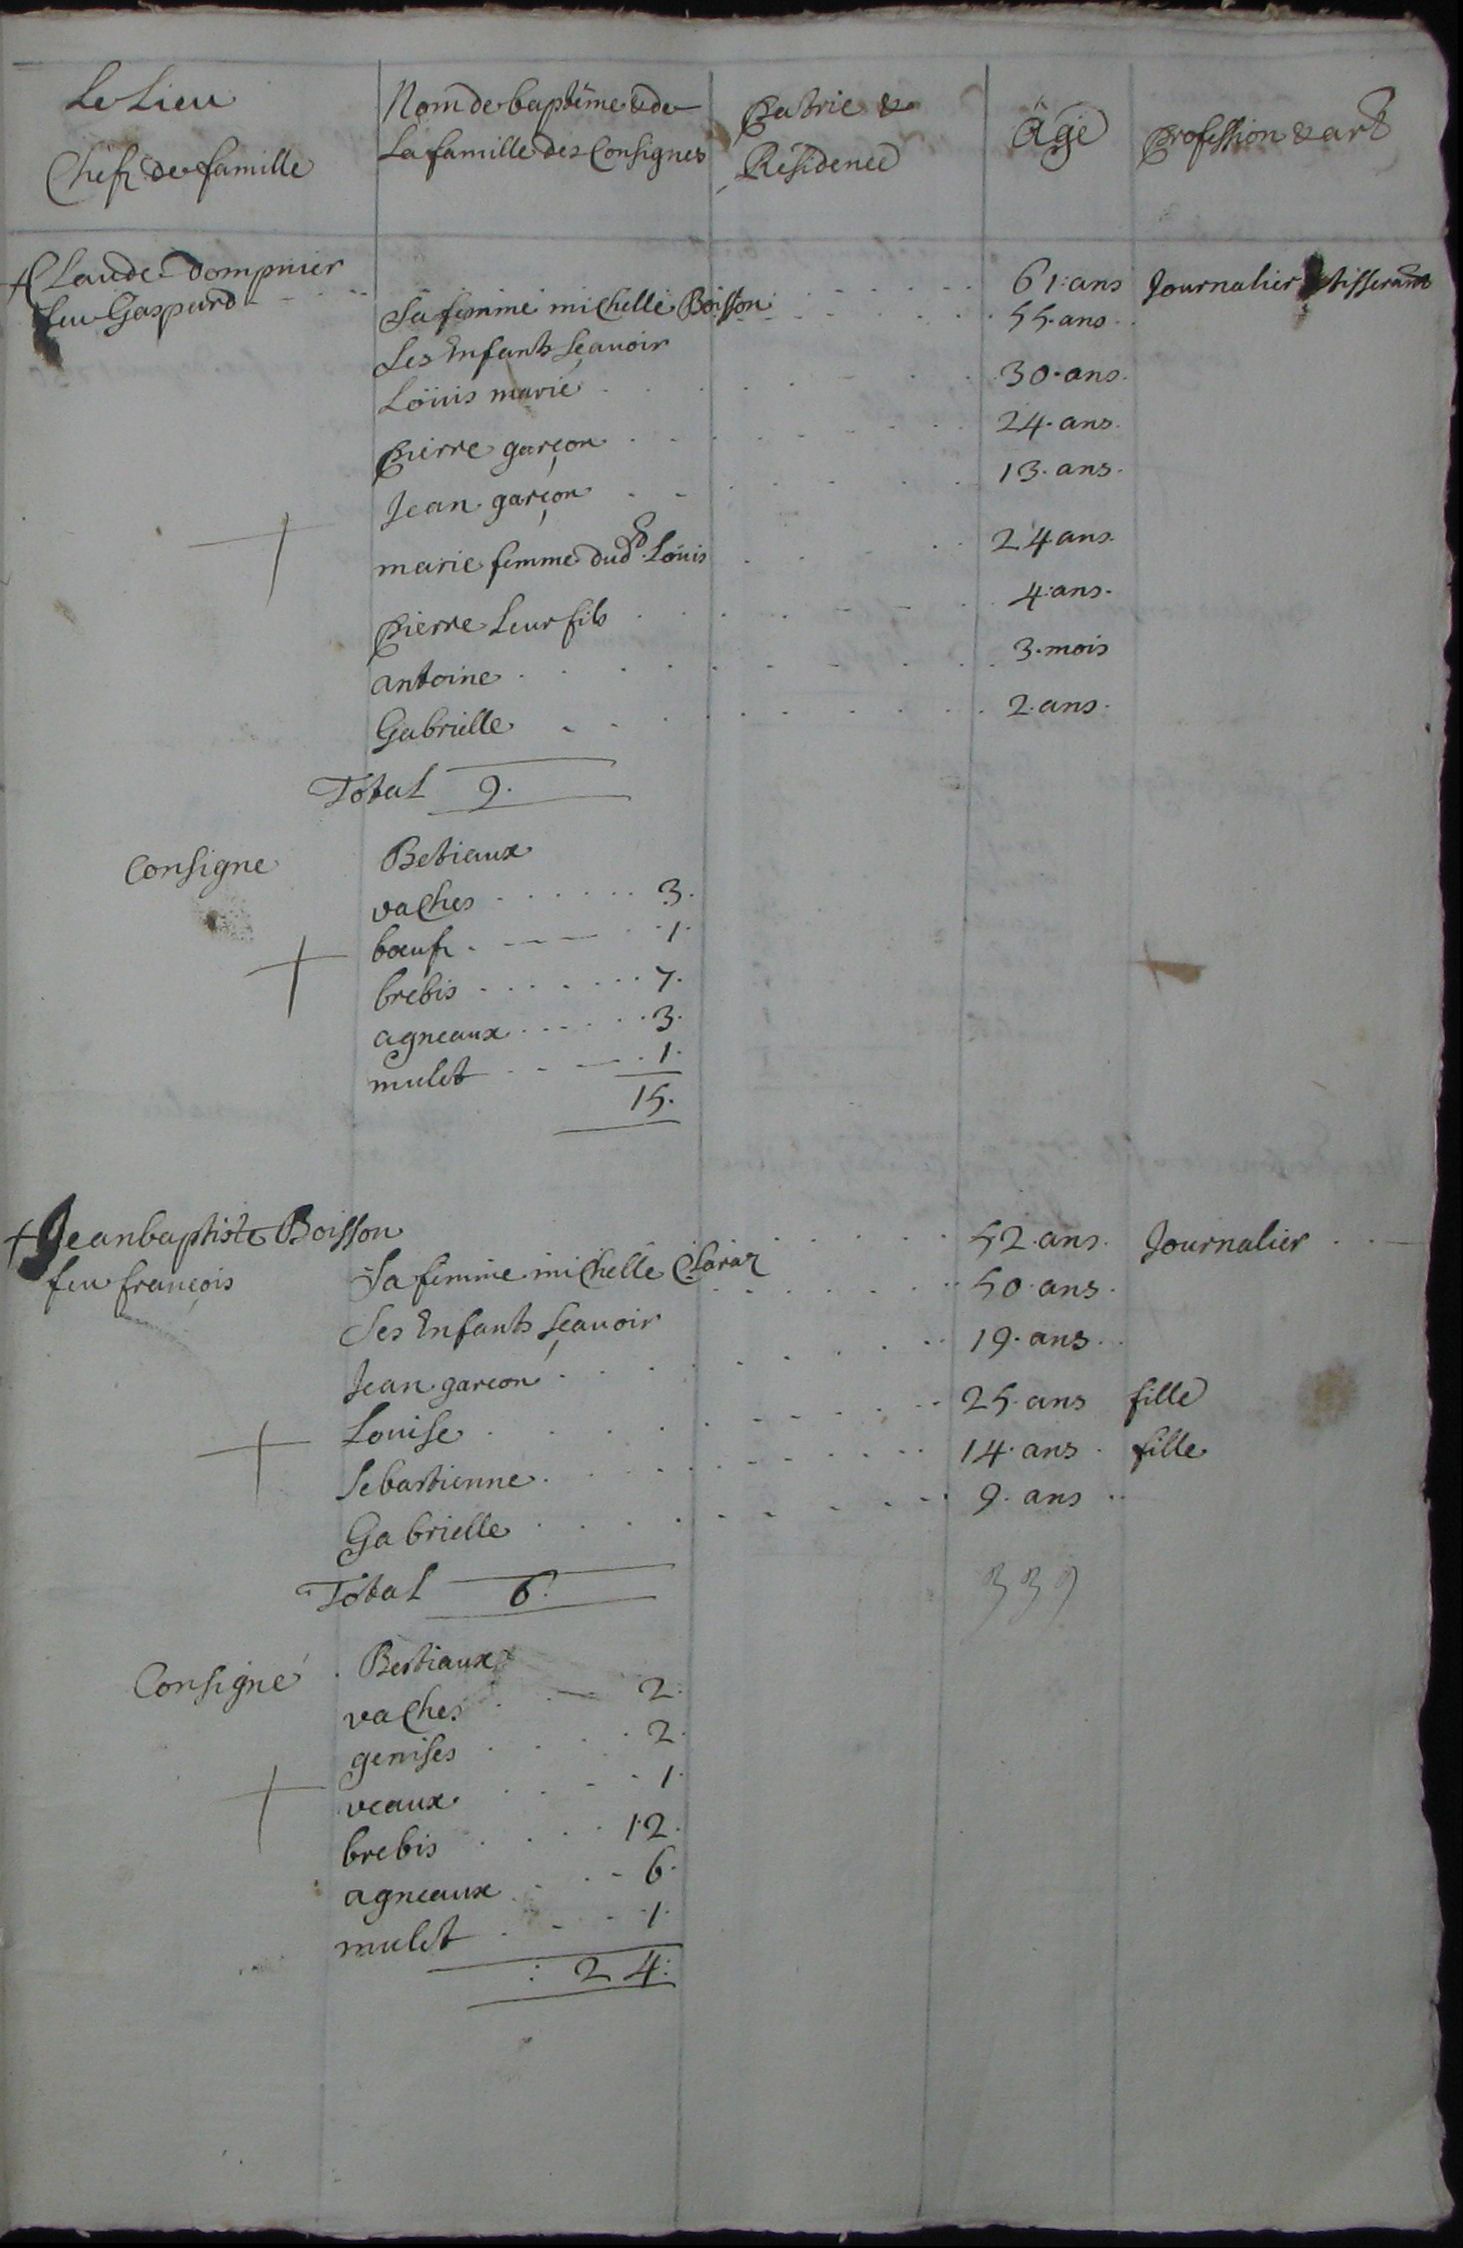 Le Lieu
Chefz de famille
Nom de baptême & de
La famille des Consignes
Patrie &
Résidence
Âge
Profession & art
+ Claude Dompnier 61. ans Journalier & tisserand
feu Gaspard
Sa femme michelle Boisson 55. ans
Les Enfants sçauoir
Loüis marié 30. ans.
Pierre garçon 24. ans.
Jean garçon 13. ans.
marie femme dud. Loüis 24 ans.
Pierre Leur fils 4. ans.
antoine 3. mois
Gabrielle 2. ans.
Total 9.
Consigne Betiaux
vaches 3.
bœufz 1.
brebis 7.
agneaux 3.
mulet 1.
15.
+ Jean baptiste Boisson 52. ans. Journalier
feu françois
Sa femme michelle 50. ans.
Ses Enfants sçauoir
Jean garcon 19. ans.
Louise 25. ans fille
Sebastienne 14. ans. fille
Gabrielle 9. ans
Total 6.
339
Consigné Bestiaux
vaches 2.
genises 2.
veaux 1.
brebis 12.
agneaux 6.
mulet 1.
: 24 :